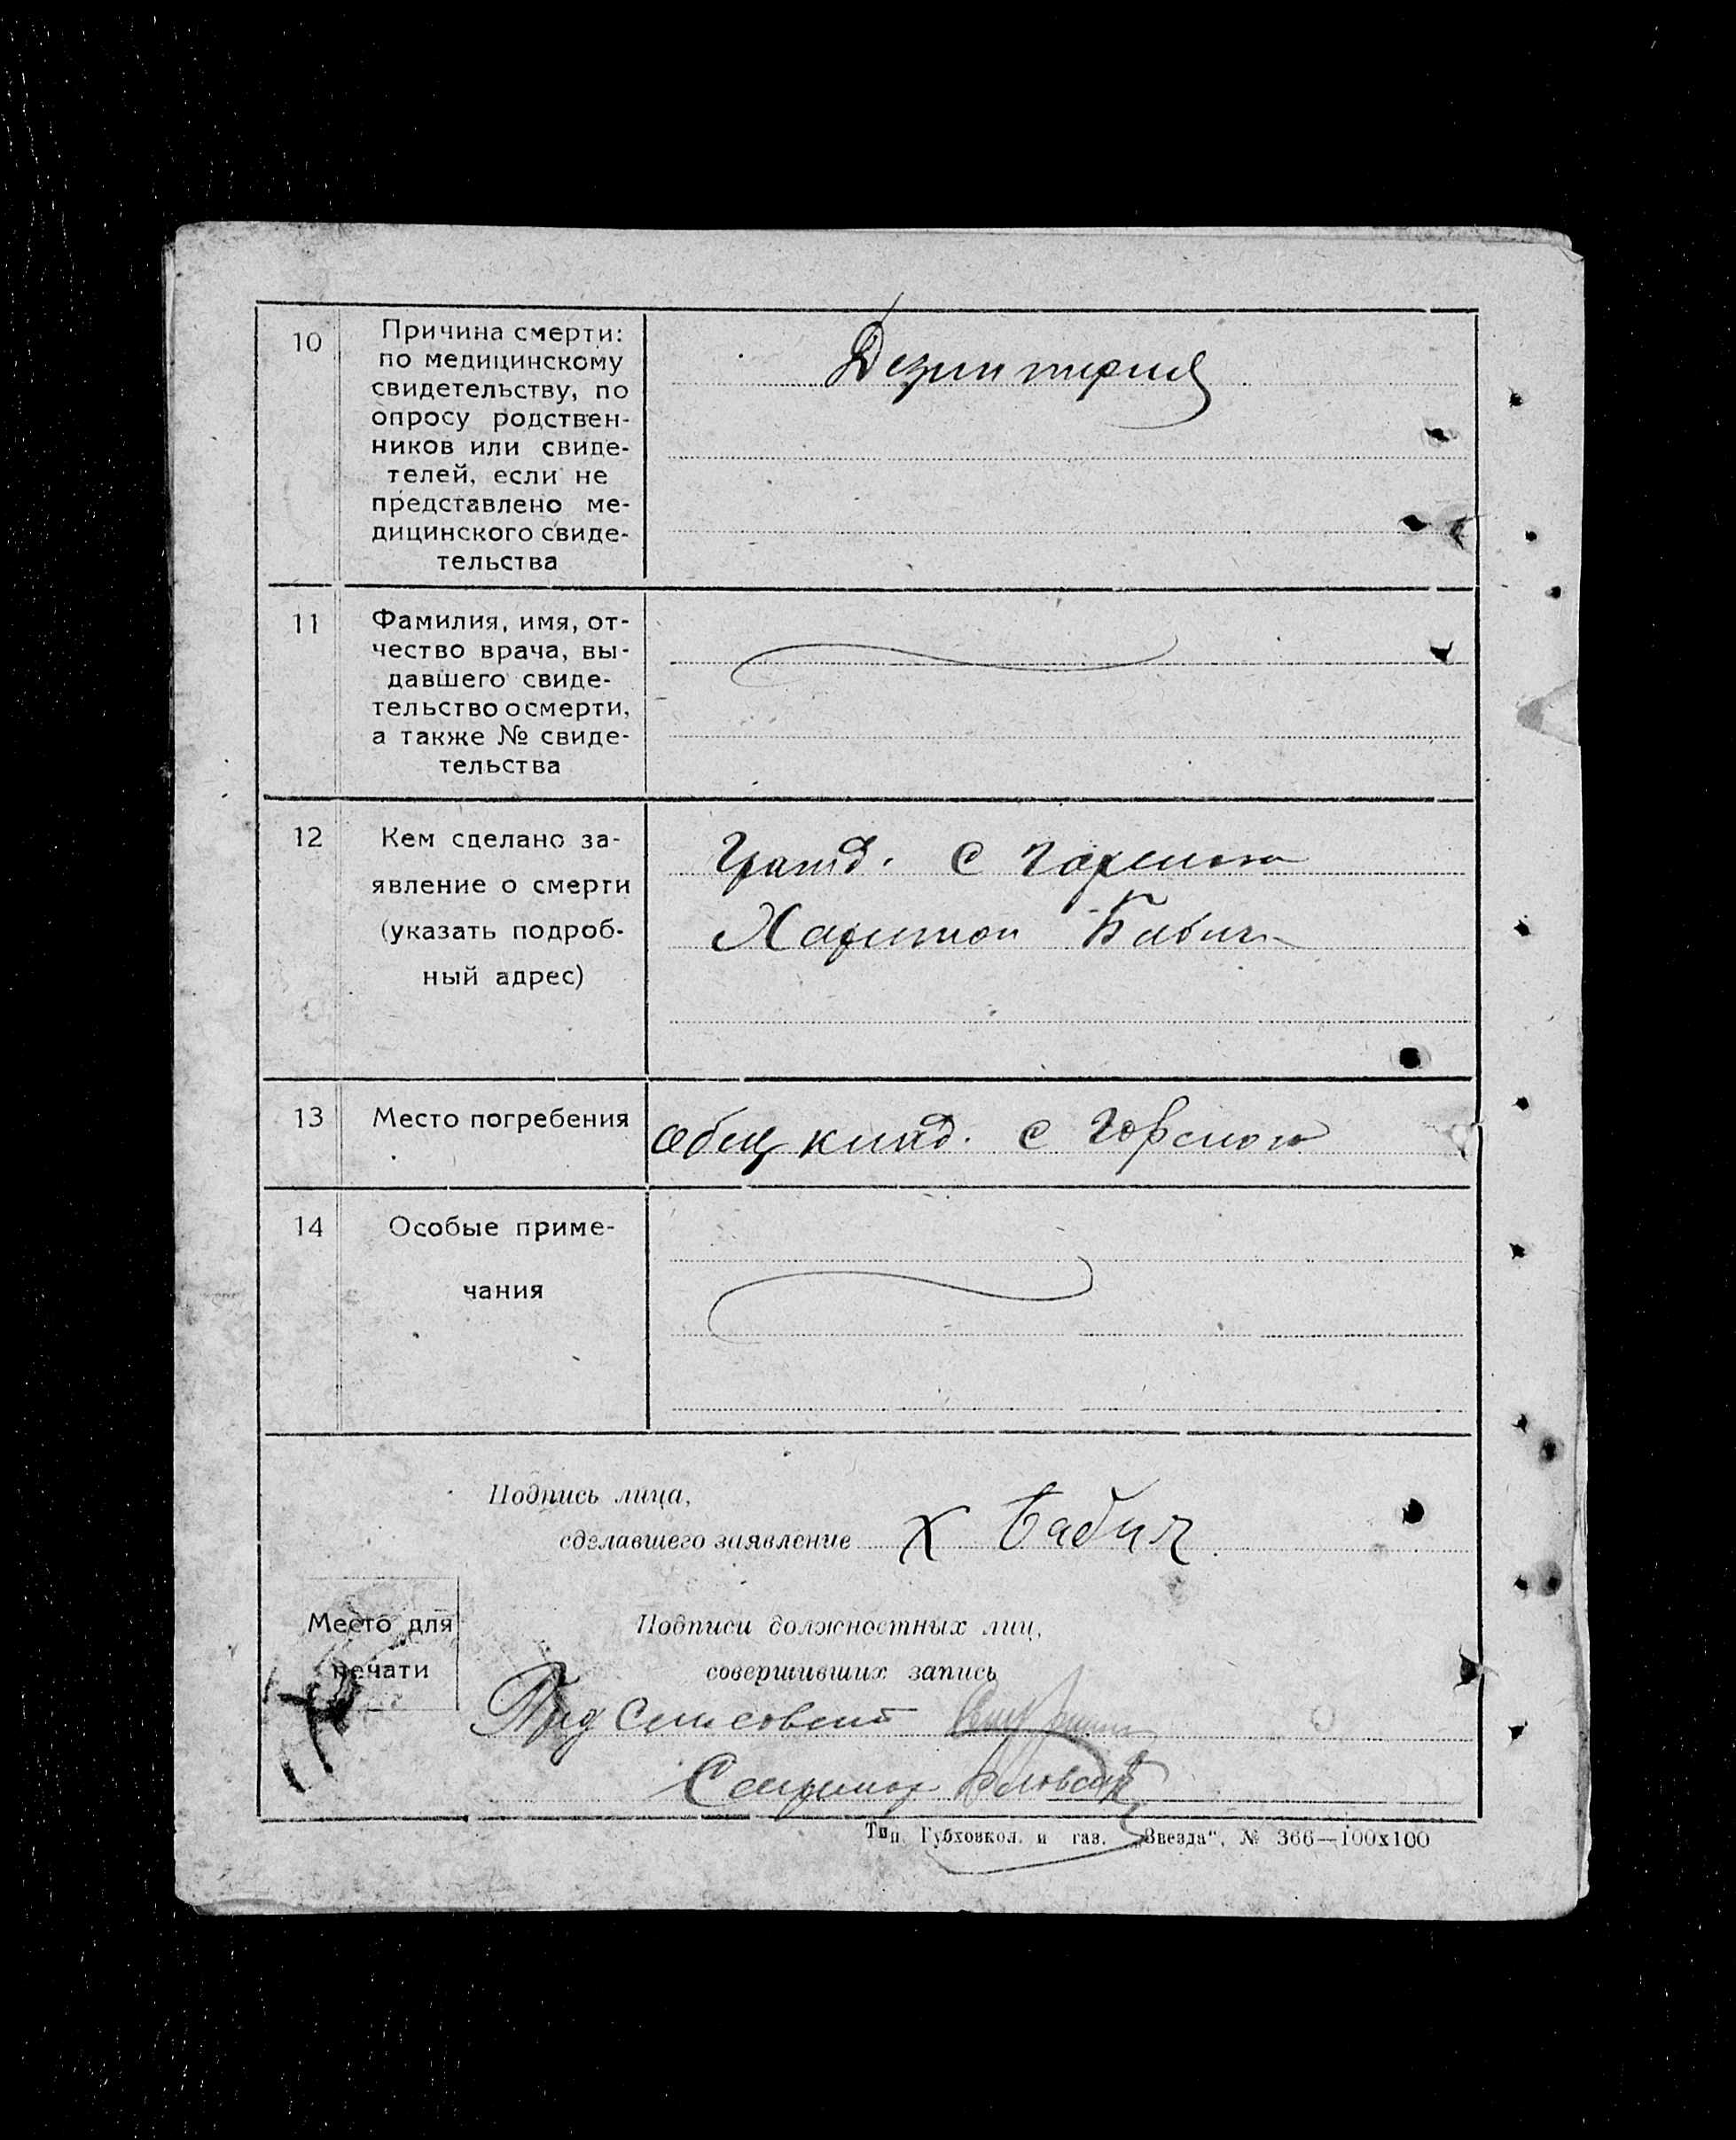 10
Причина смерти:
по медицинскому
свидетельству, по
опросу родствен-
ников или свиде-
телей, если не
представлено ме-
дицинского свиде-
тельства
Дезинтерия
11
Фамилия, имя, от-
чество врача, вы-
давшего свиде-
тельство о смерти,
а также № свиде-
тельства
12
Кем сделано за-
явление о смерти
(указать подроб-
ный адрес)
Гражд. с Горского
Харитон Бабич
13
Место погребения
общ кладб. с Горского
14
Особые приме-
чания
Подпись лица,
сделавшего заявление Х Бабич
Место для
печати
Подписи должностных лиц,
совершивших запись
Пред Сельсовета
Секретарь
Тип. Губховкол. и газ. „Звезда“, № 366—100х100